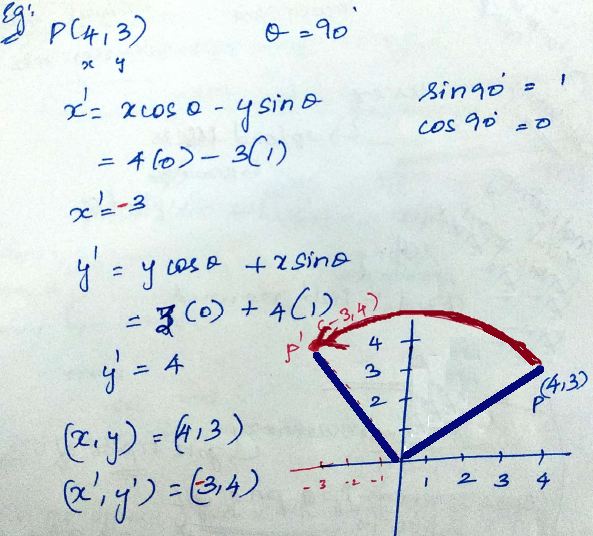 Eg:
P(4,3) θ = 90°
x y
x' = x cos θ - y sin θ
sin 90° = 1
cos 90° = 0
= 4(0) - 3(1)
x' = -3
y' = y cos θ + x sin θ
= 3(0) + 4(1)
y' = 4
(x, y) = (4,3)
(x', y') = (-3,4)
(-3,4)
P'
4
3
2
P(4,3)
-3 -2 -1 1 2 3 4